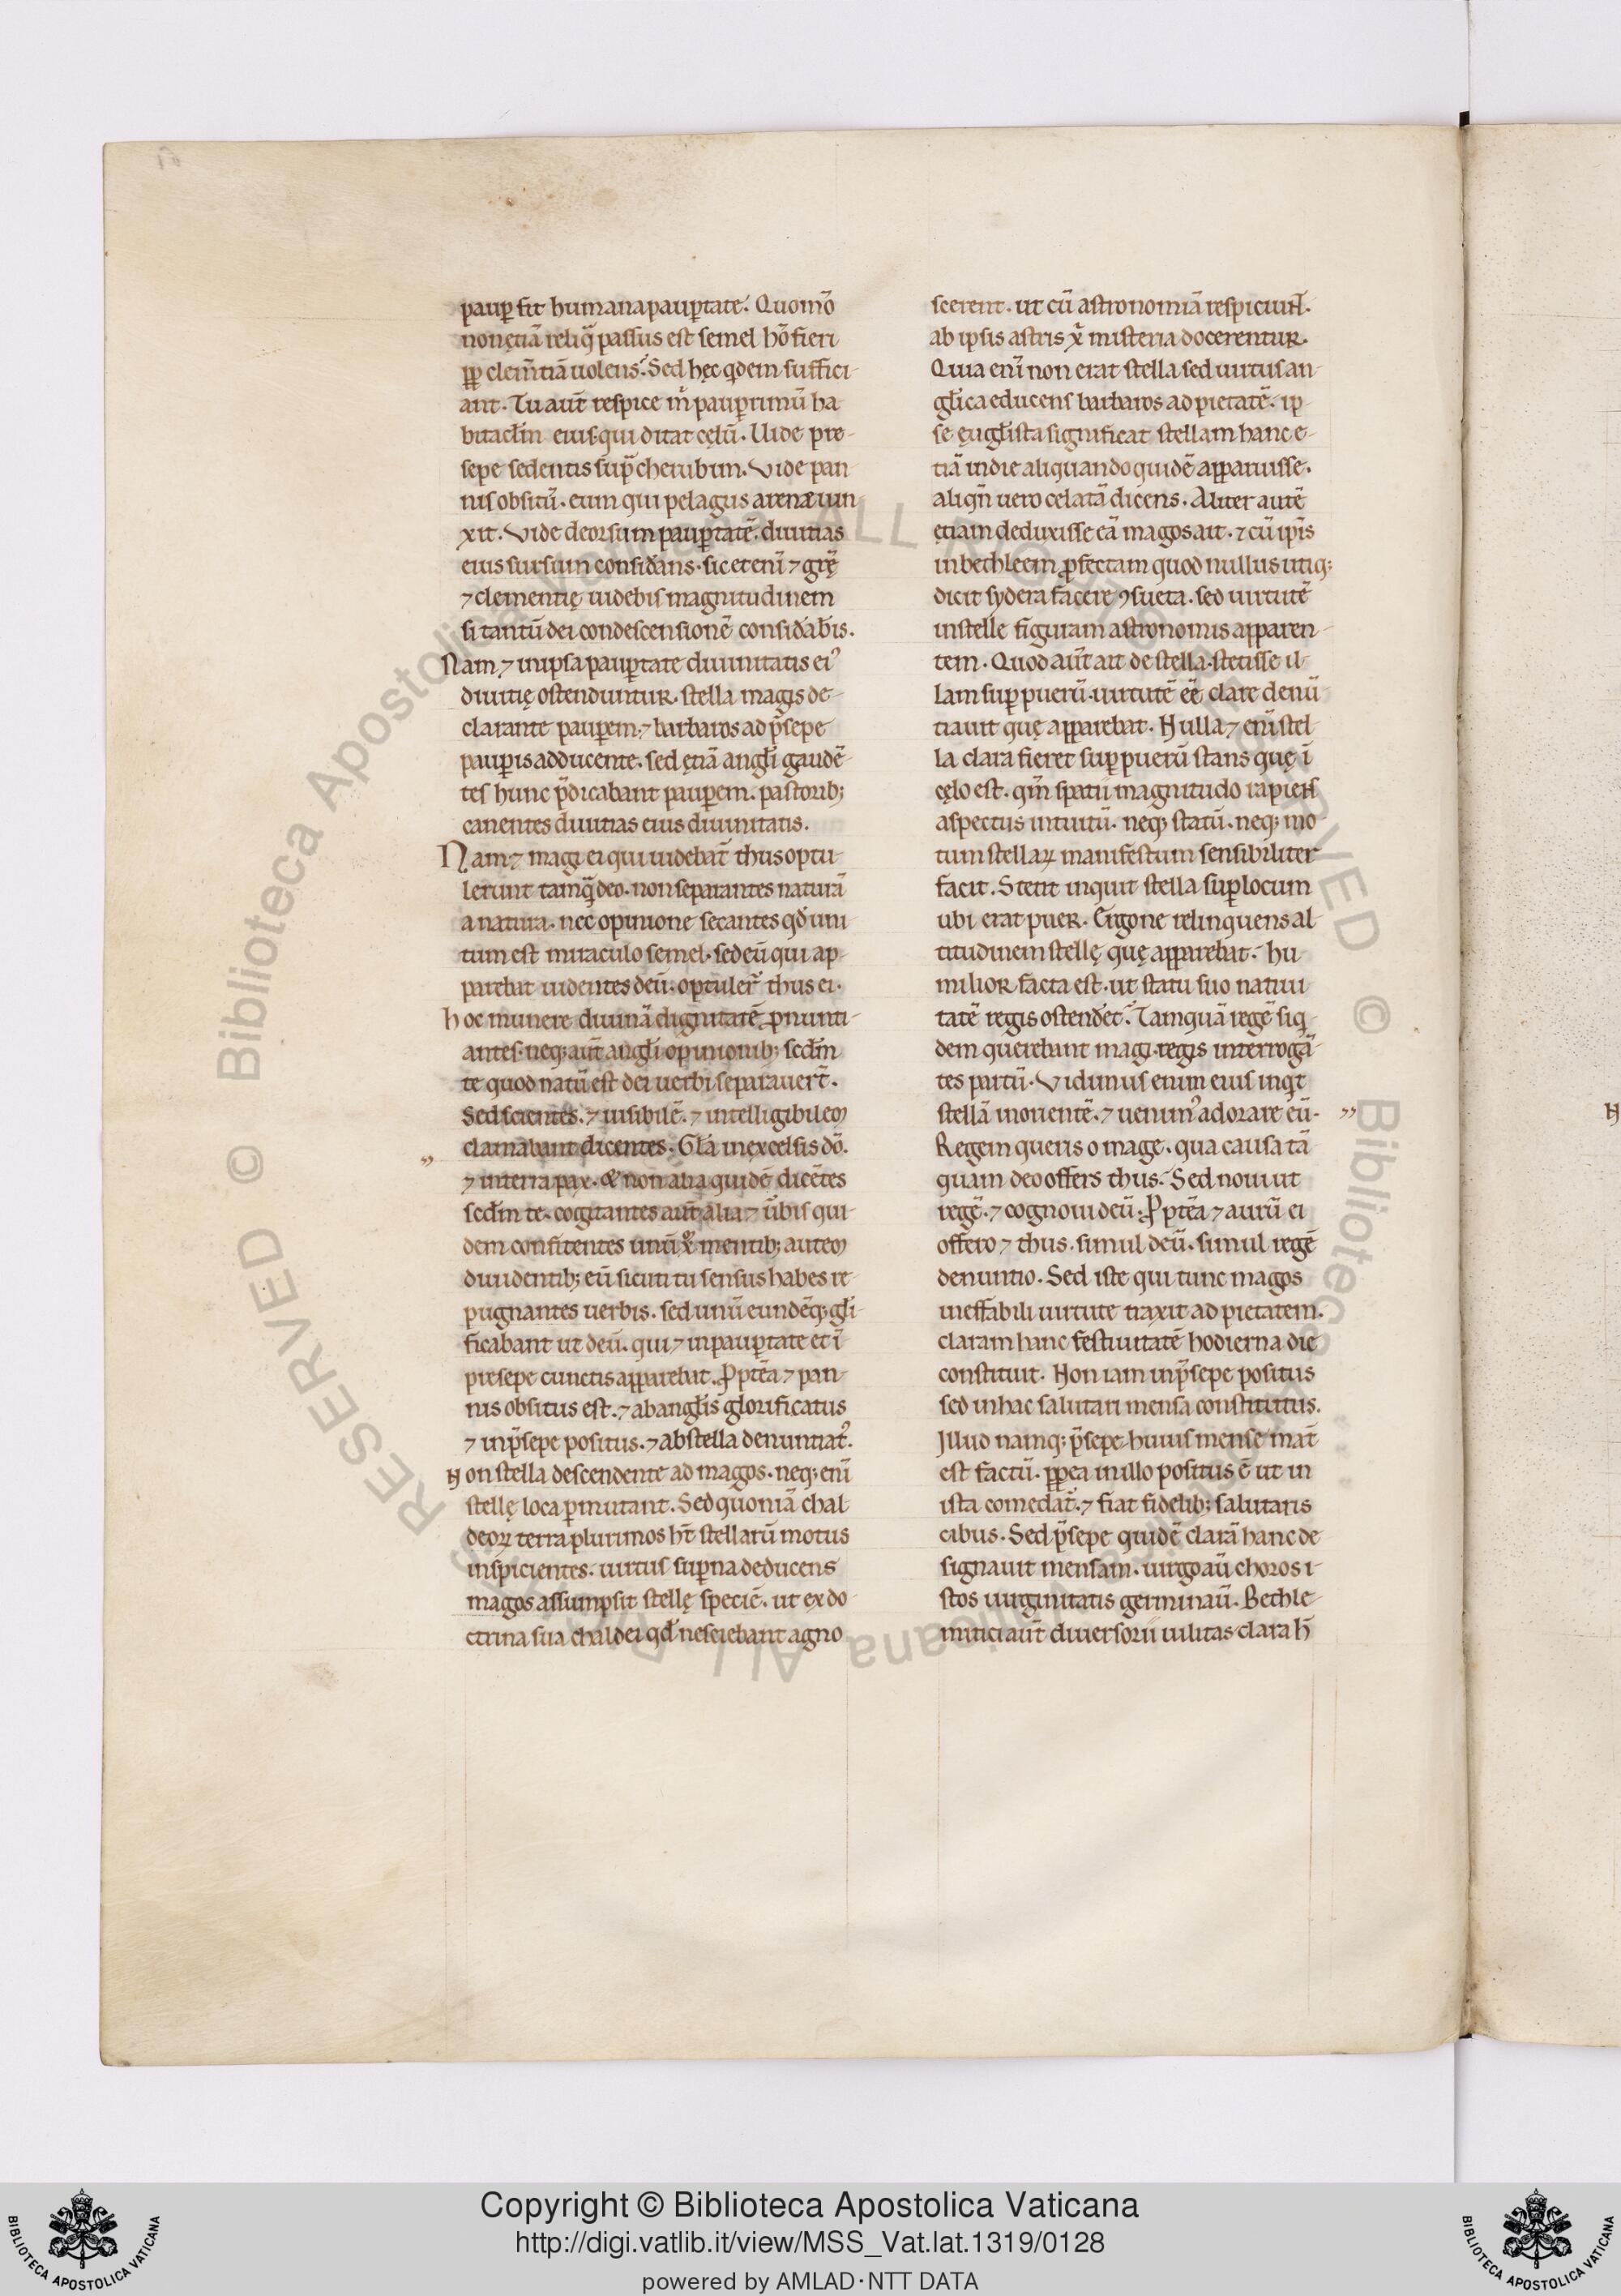 paup̲ fit humana paup̲tate. Quom̄o
non ętiā reliq̄ passus est semel hō fieri
ꝓp̲ clem̄tiā uolens. Sed hęc qdem suffici-
ant. Tu aut̄ respice m̊ paup̲rimū ha-
bitac̄lm eius. qui ditat cęlū. Uide pre-
sepe sedentis sup̲ cherubim. Vide pan-
nis obsitū. eum qui pelagus arenæ uin-
xit. Vide deorsum paup̲tatē. diuitias
eius sursum considerans. sic etenī ⁊ grę̄
⁊ clementię uidebis magnitudinem
si tantū dei condescensionē considāb̄is.
Nam ⁊ in ipsa paup̲tate diuinitatis ei᾽
diuitię ostenduntur. stella magis de-
clarante paup̲em. ⁊ barbaros ad p̄sepe
paup̲is adducente. sed ętiā angl̄i gaudē-
tes hunc p̄dicabant paup̲em. pastorib;
canentes diuitias eius diuinitatis.
Nam ⁊ magi ei qui uidebat̄ thus optu-
lerunt tamq̄ deo. non separantes naturā
a natura. nec opinione secantes qđ uni-
tum est miraculo semel. sed eū qui ap-
parebat uidentes deū. optuler̄ thus ei.
hoc munere diuinā dignitatē ꝓnunti-
antes. neq; aut̄ angl̄i opinionib; scd̄m
te quod natū est dei uerbi separauer̄t.
Sed scientes. ⁊ uisibilē. ⁊ intelligibilem
clamabant dicentes. Gl̄a in excelsis dō.
⁊ in terra pax. & non alia quidē dicētes
scd̄m te. cogitantes aut̄ alia ⁊ ūbis qui-
dem confitentes unū x̄. mentib; autem
diuidentib; eū sicuti tu sensus habes re-
pugnantes uerbis. sed unū eundēq; gl̄i-
ficabant ut deū. qui ⁊ in paup̲tate et ī
presepe cunctis apparebat. Ꝓptēa ⁊ pan-
nis obsitus est. ⁊ ab angl̄is glorificatus
⁊ in p̄sepe positus. ⁊ ab stella denuntiat᾽.
Non stella descendente ad magos. neq; enī
stellę loca p̲mutant. Sed quoniā chal-
deoꝝ terra plurimos ht̄ stellarū motus
inspicientes. uirtus sup̲na deducens
magos assumpsit stellę speciē. ut ex do-
ctrina sua chaldei qđ nesciebant agno-
scerent. ut cū astronomiā respiciunt.
ab ipsis astris x̄ misteria docerentur.
Quia enī non erat stella sed uirtus an-
gl̄ica educens barbaros ad pietatē. ip-
se ęuḡlista significat stellam hanc e-
tiā in die aliquando quidē apparuisse.
aliqn̄ uero celatā dicens. Aliter autē
ętiam deduxisse eā magos ait. ⁊ cū ip̄is
in bethleem ꝓfectam quod nullus utiq;
dicit sydera facere ꝯsueta. sed uirtutē
in stelle figuram astronomis apparen-
tem. Quod aut̄ ait de stella. stetisse il-
lam sup̲ puerū. uirtutē eē clare denū-
tiauit quę apparebat. Nulla ⁊ enī stel-
la clara fieret sup̲ puerū stans quę ī
cęlo est. qm̄ spatii magnitudo rapiens
aspectus intuitū. neq; statū. neq; mo-
tum stellaꝝ manifestum sensibiliter
facit. Stetit inquit stella sup̲ locum
ubi erat puer. Ergone relinquens al-
titudinem stellę quę apparebat. hu-
milior facta est. ut statu suo natiui-
tatē regis ostenderet. Tamquā regē siq-
dem querebant magi. regis interrogā-
tes partū. Vidimus enim eius inqͥt
stellā in orientē. ⁊ uenim᾽ adorare eū.
Regem queris o mage. qua causa tā-
quam deo offers thus. Sed noui ut
regē. ⁊ cognoui deū. Ꝓptēa ⁊ aurū ei
offero ⁊ thus. simul deū. simul regē
denuntio. Sed iste qui tunc magos
ineffabili uirtute traxit ad pietatem.
claram hanc festiuitatē hodierna die
constituit. Non iam in p̄sepe positus
sed in hac salutari mensa constitutus.
Illud namq; p̄sepe huius mense mat̄
est factū. ꝓp̲ea in illo positus ē ut in
ista comedat᾽. ⁊ fiat fidelib; salutaris
cibus. Sed p̄sepe quidē clarā hanc de-
signauit mensam. uirgo aū choros i-
stos uirginitatis germinaū. Bethle-
mitici aut̄ diuersorii uilitas clara h̄
Copyright © Biblioteca Apostolica Vaticana
http://digi.vatlib.it/view/MSS_Vat.lat.1319/0128
powered by AMLAD·NTT DATA